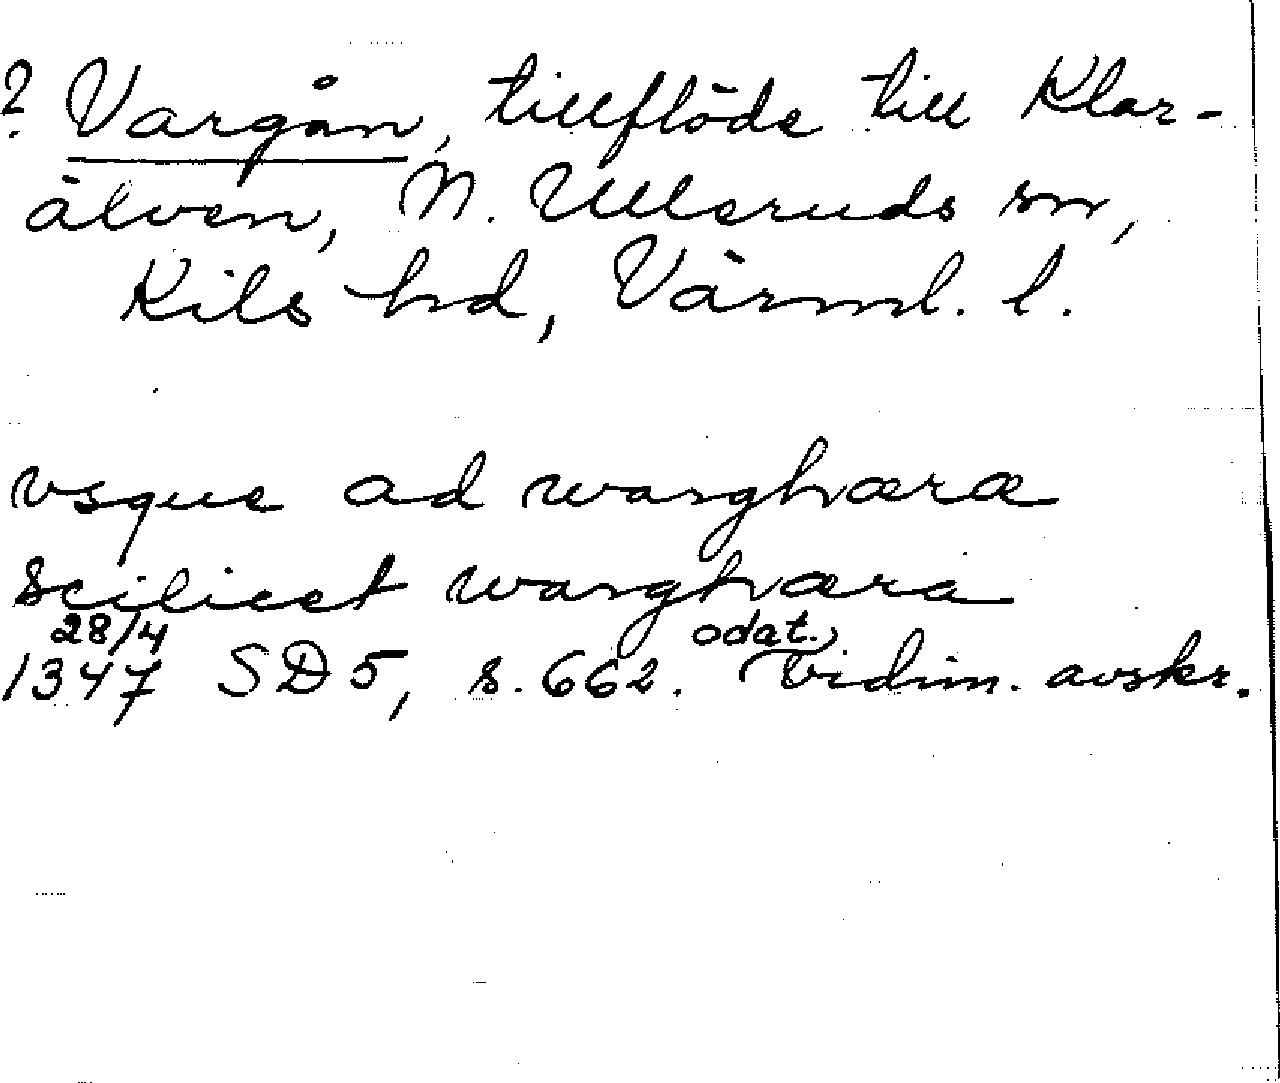 ? Vargån, tillflöde till Klar-
älven, N. Ulleruds sn,
Kils hd, Värml. l.
vsque ad warghæræ
scilicet warghæra
28/4 odat.
1347 SD 5, s. 662. Vidim. avskr.